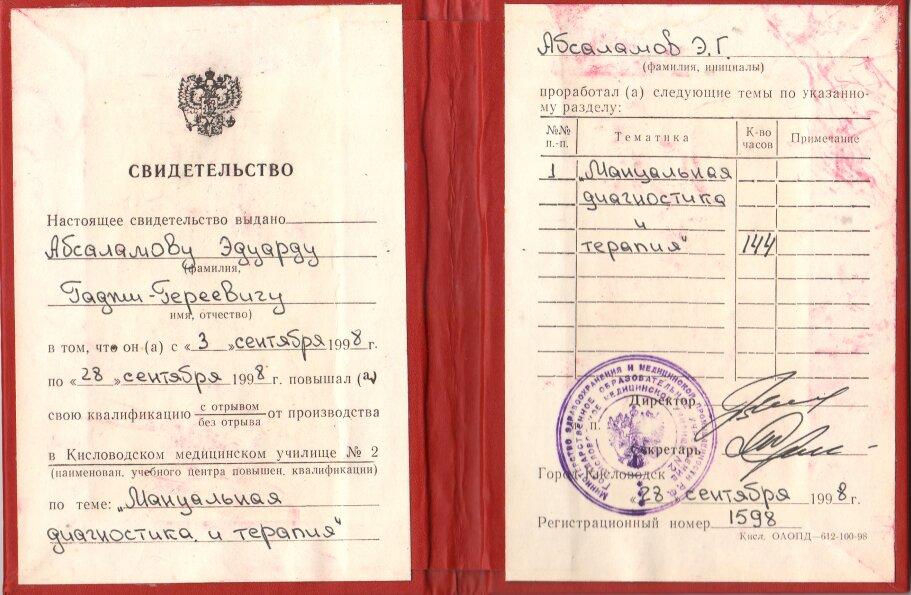 СВИДЕТЕЛЬСТВО
Настоящее свидетельство выдано
Абсаламову Эдуарду
(фамилия,
Гаджи-Гереевичу
имя, отчество)
в том, что он (а) с «3» сентября 1998 г.
по «28» сентября 1998 г. повышал (а)
свою квалификацию с отрывом от производства
без отрыва
в Кисловодском медицинском училище № 2
(наименован. учебного центра повышен. квалификации)
по теме: „Мануальная
диагностика и терапия"
Абсаламов Э.Г.
(фамилия, инициалы)
проработал (а) следующие темы по указанно-
му разделу:
№№ п.-п. Тематика К-во часов Примечание
1 „Мануальная
диагностика
и
терапия" 144
Директор
п.
Секретарь
Город Кисловодск
«28» сентября 1998 г.
Регистрационный номер 1598
Кисл. ОАОПД—612-100-98